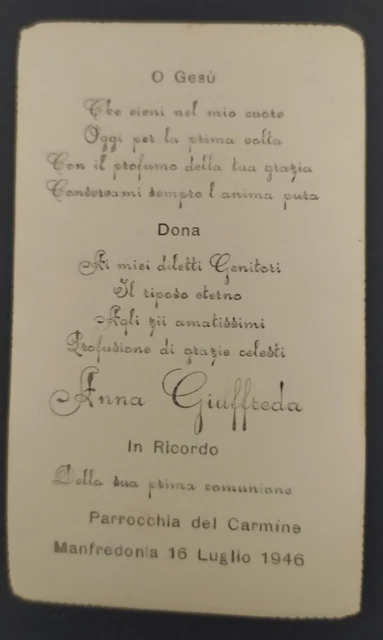 O Gesù
Che vieni nel mio cuore
Oggi per la prima volta
Con il profumo della tua grazia
Conservami sempre l'anima pura
Dona
Ai miei diletti Genitori
Il riposo eterno
Agli zii amatissimi
Profusione di grazie celesti
Anna Giuffreda
In Ricordo
Della sua prima comunione
Parrocchia del Carmine
Manfredonia 16 Luglio 1946